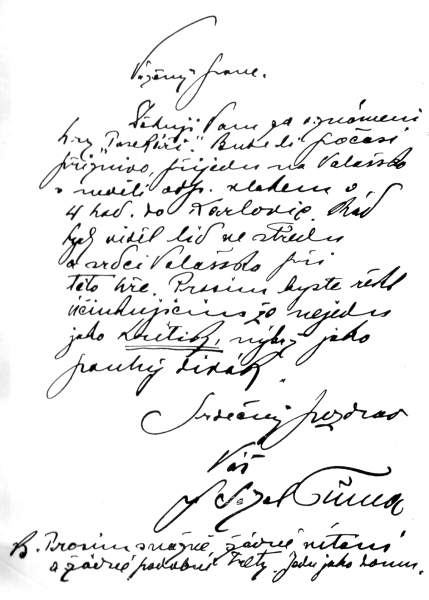 Vážený pane.
Děkuji Vám za oznámení
hry "Pasekáři." Bude-li počasí
příznivo, přijedu na Valašsko
v neděli odp. vlakem o
4 hod. do Karlovic. Rád
bych viděl lid ve středu
a srdci Valašska při
této hře. Prosím byste řekl
účinkujícím, že nejedu
jako kritik, nýbrž jako
pouhý divák.
Srdečný pozdrav
Váš
Prosím snažně, žádné vítání
a žádné podobné . Jedu jako domu.